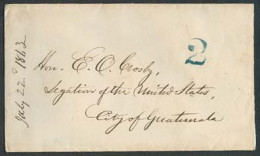 July 22d 1863
2
Hon. E. O. Crosby,
Legation of the United States,
City of Guatemala